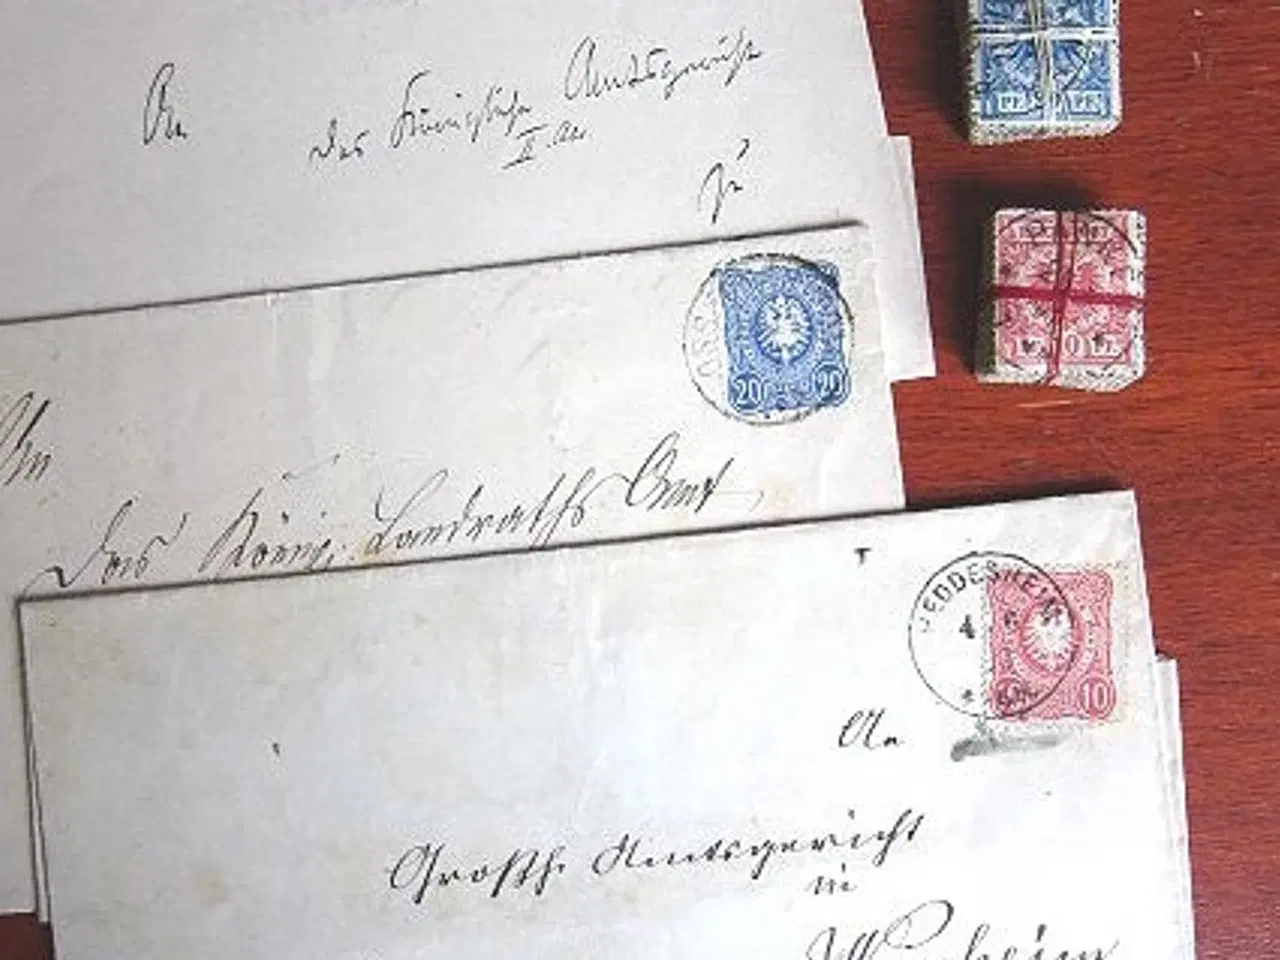 An
das Königliche Amtsgericht
II
zu
An
das König. Landraths Amt
20 20
HEDDESHEIM
4 6
10
An
Großh. Amtsgericht
in
PF. PF.